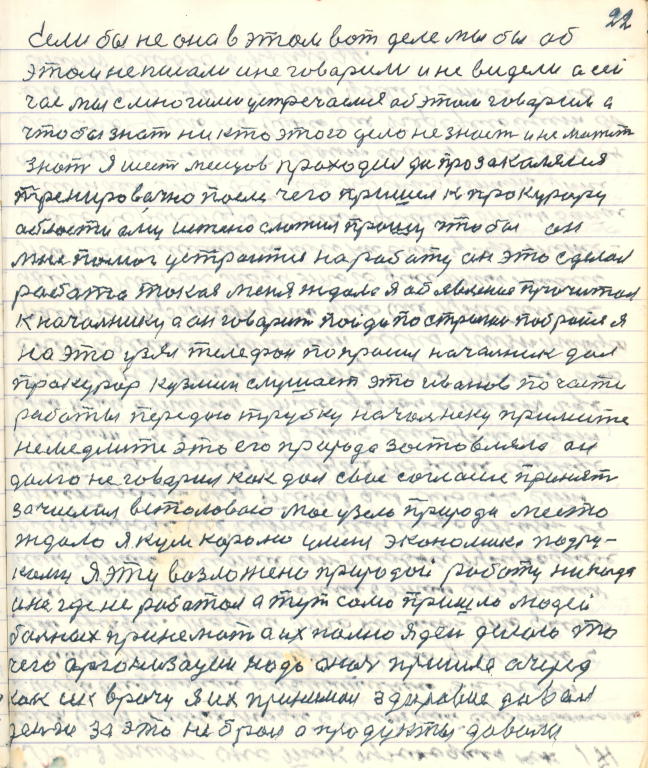 22
Если бы не она в этом вот деле мы бы об
этом не писали и не говорили и не видели а сей
час мы с многими устречаемся об этом говорим а
чтобы знат ни кто этого дело не знает и не может
знат Я шест месецов проходил да прозакалялся
тренировачно после чего пришел к прокурору
области ему истено сложил прошу чтобы он
мне помог устроится на работу он это сделал
работа токая меня ждала я обявление прочитал
к началнику а он говорит пойди постриги побрейся я
на это узял телефон попросил началник дал
прокурор кузмин слушает это иванов по части
работы передаю трубку началнеку примите
немедлите это его природа заставляла он
долго не говорил как дал свое согласие принят
зачислил истоповаю мое узело природи место
ждало я кум королю уменя экономика под ру-
ками Я эту возложено природой работу никогда
и не где не работал а тут само пришло людей
болных принемат а их полно я ден делаю то
чего организации надо оная пришла очеред
как их врачу я их принимаю здаровие давал
денги за это не брал а продукты давали